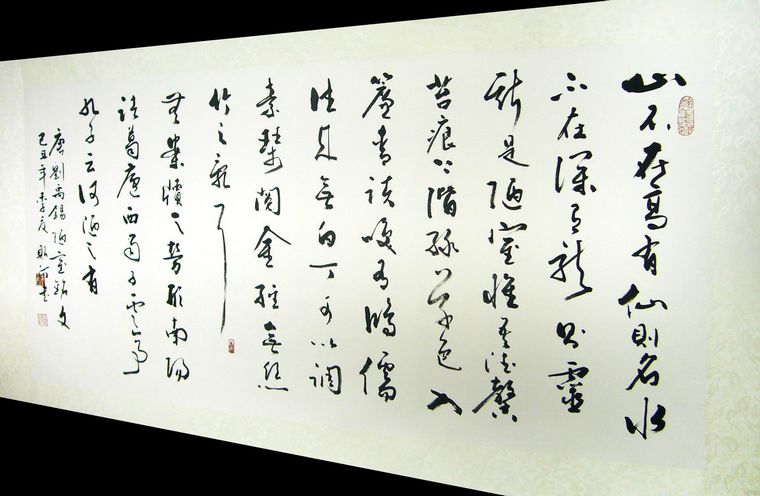 山不在高有仙則名水
不在深有龍則靈
斯是陋室惟吾德馨
苔痕上階綠草色入
簾青談咲有鴻儒
往来無白丁可以調
素琴閱金經無絲
竹之亂耳
無案牘之勞形南陽
諸葛廬西蜀子雲亭
孔子云何陋之有
唐劉禹錫陋室銘文
己丑年李